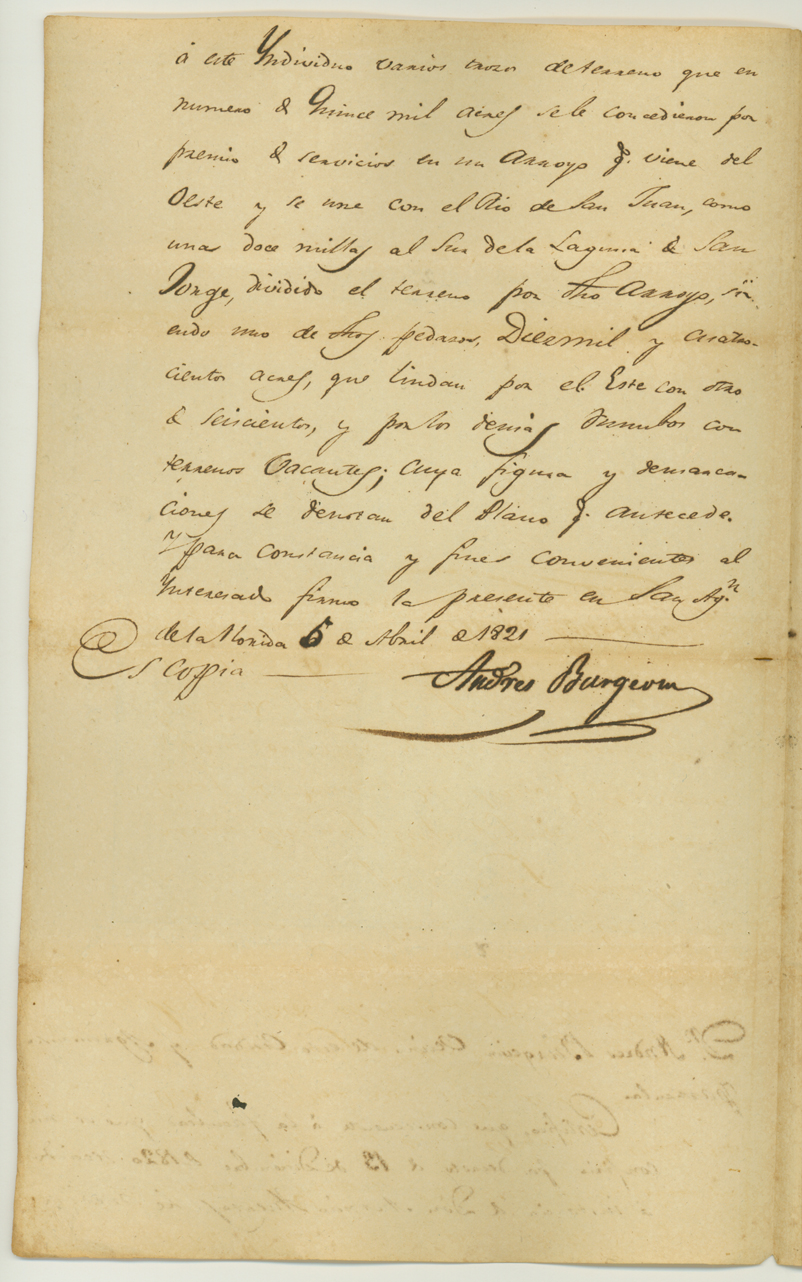 á este Yndividuo varios trozos de terreno que en
numero d Quince mil acres sele concedieron por
premio d servicios en un Arroyo q.e viene del
Oeste y se une con el Rio de San Juan, como
unas doce millas al Sur dela Laguna d San
Jorge, dividido el terreno por dho Arroyo, si-
endo uno de dhos pedazos, Diezmil y cuatro-
cientos acres, que lindan por el Este con otro
d seiscientos, y por los demas rumbos con
terrenos Vacantes; cuya figura y demarca-
ciones se denotan del Plano q.e antecede.
Y para constancia y fines convenientes al
Ynteresado firmo la presente en San Ag.n
de la Florida 5 de Abril d 1821
Es Coppia
Andres Burgevin